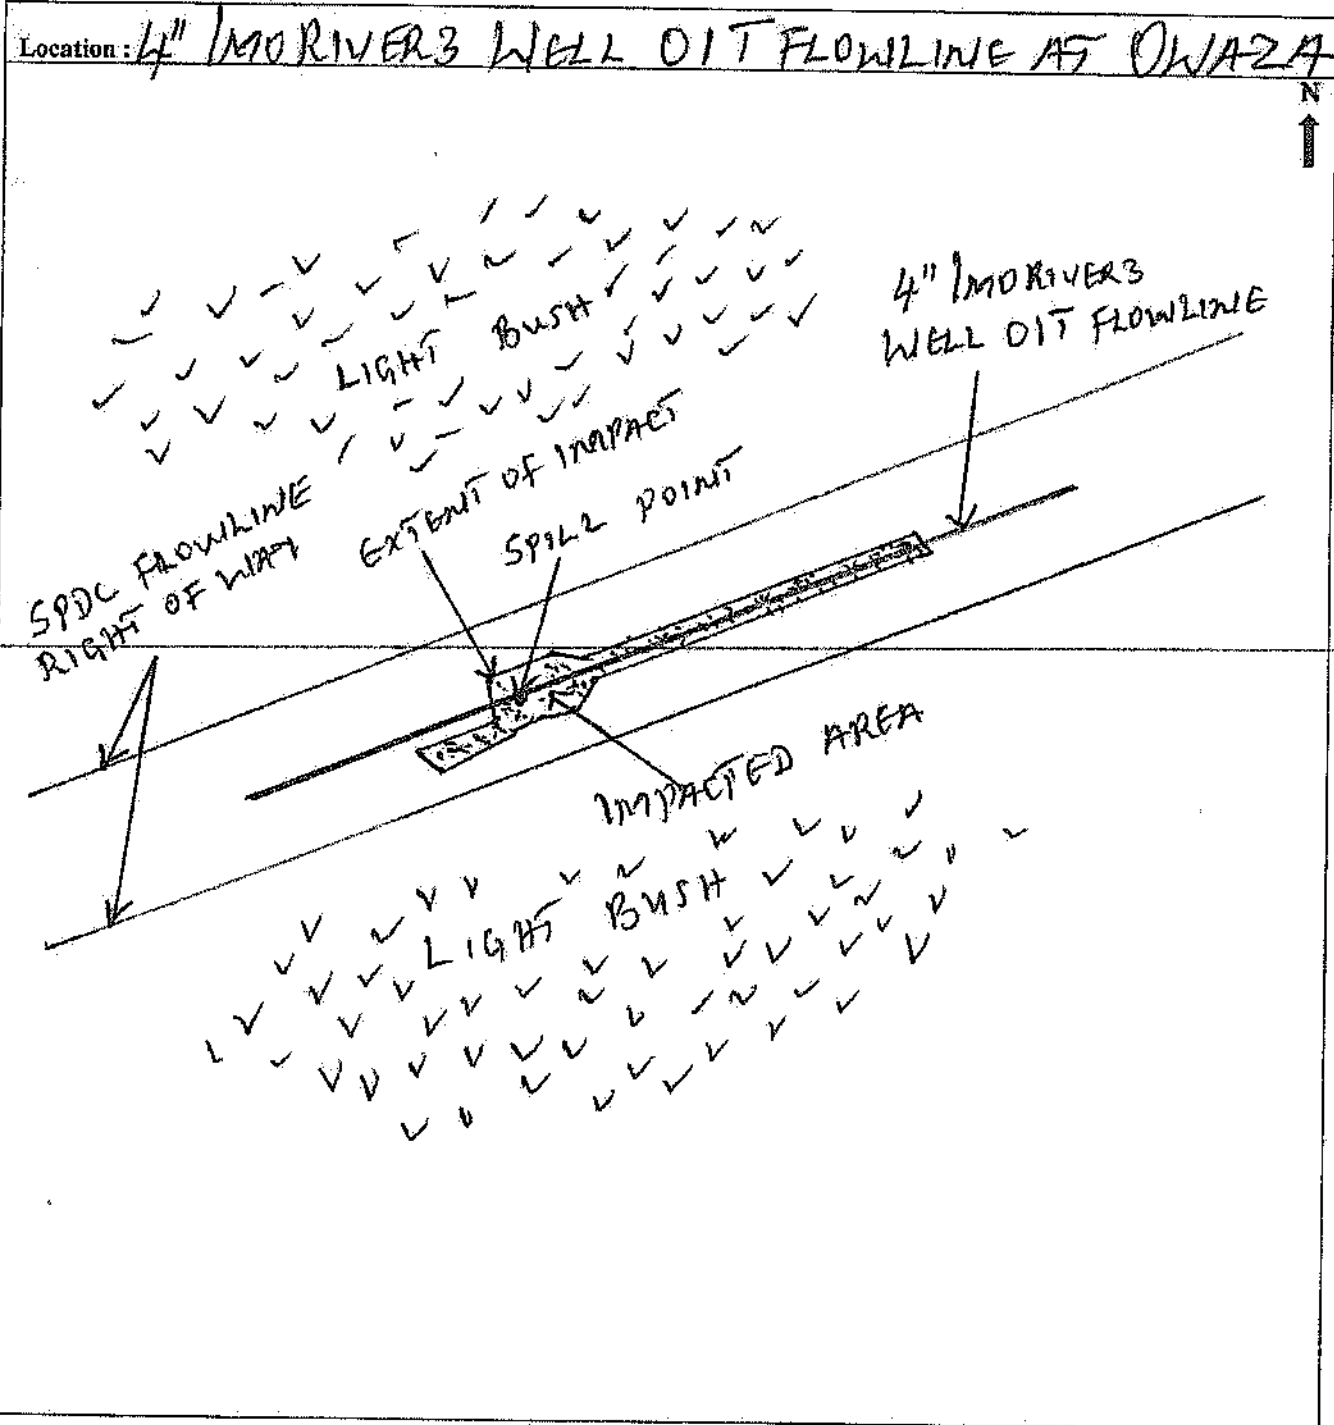 Location : 4" IMO RIVER 3 WELL 01T FLOWLINE AT OWAZA
N
LIGHT BUSH
4" IMO RIVER 3
WELL 01T FLOWLINE
SPDC FLOWLINE
RIGHT OF WAY
EXTENT OF IMPACT
SPILL POINT
IMPACTED AREA
LIGHT BUSH